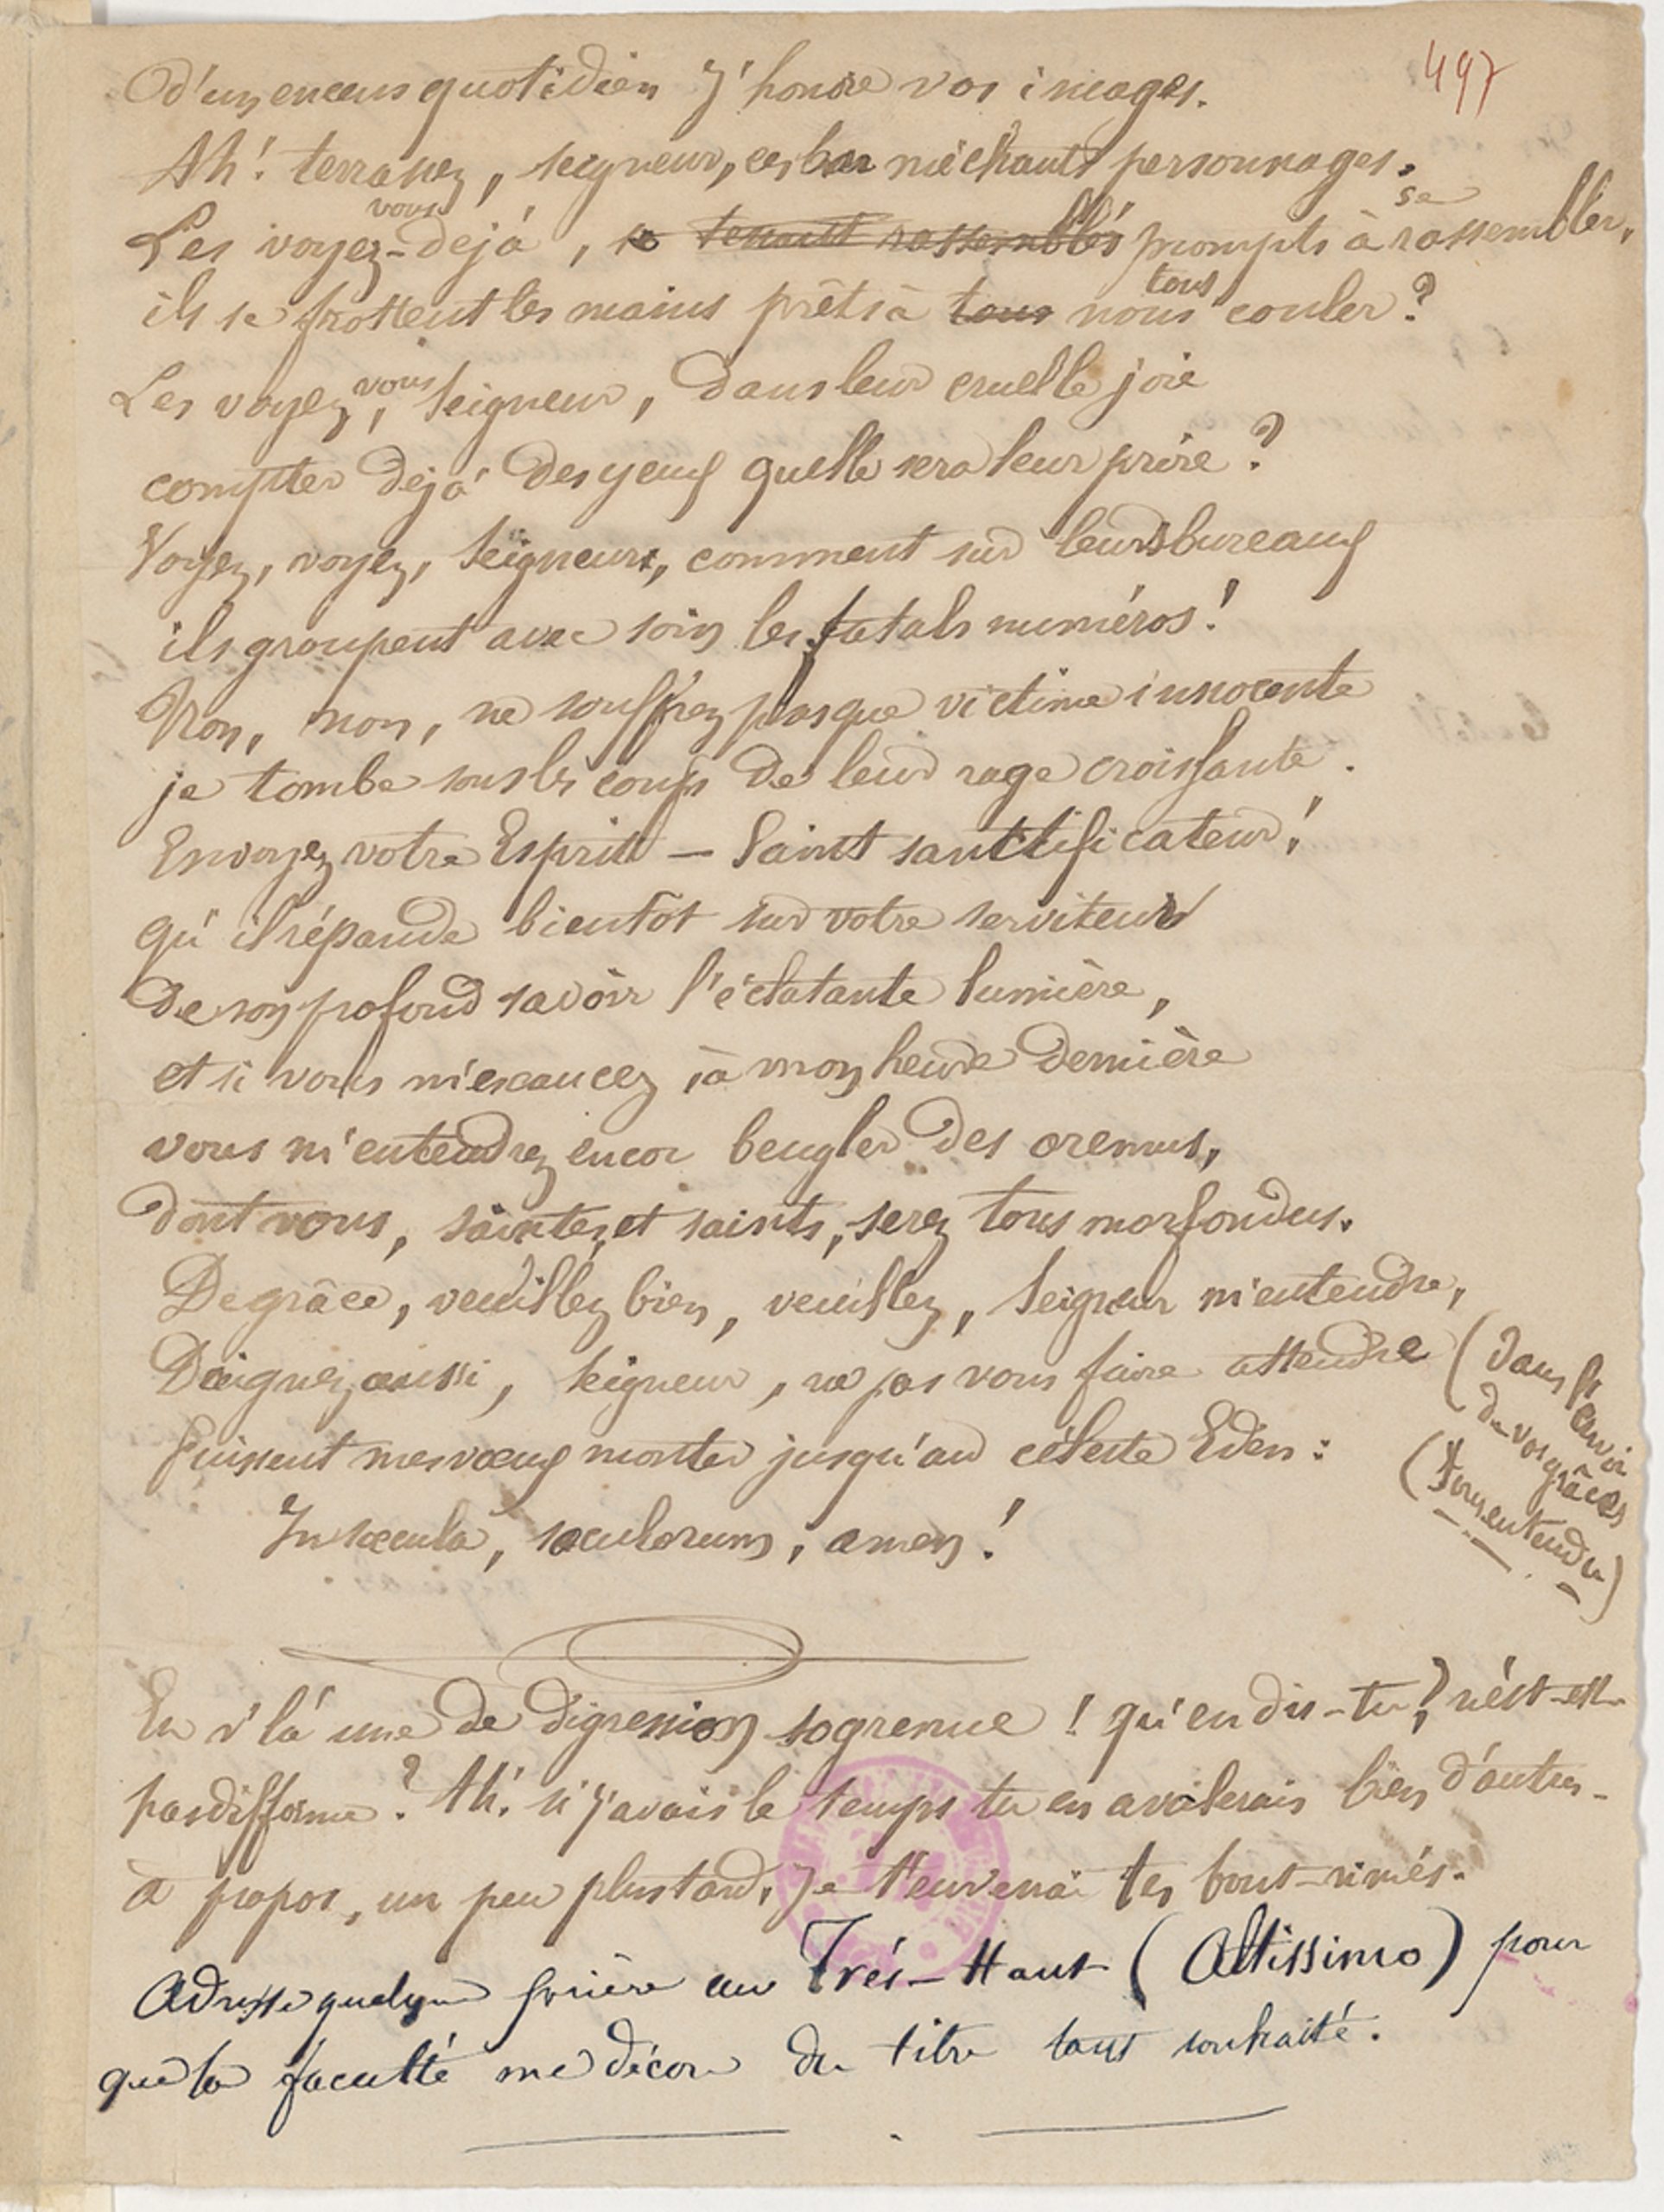 497
D'un encens quotidien j'honore vos images.
Ah! terrassez, seigneur, ces méchants personnages.
Les voyez-vous déjà, se tenant rassemblés prompts à se rassembler,
ils se frottent les mains prêts à tous nous tous couler?
Les voyez vous, Seigneur, dans leur cruelle joie
compter déjà des yeux quelle sera leur prise?
Voyez, voyez, Seigneur, comment sur leurs bureaux
ils groupent avec soin les fatals numéros!
Non, non, ne souffrez pas que victime innocente
je tombe sous les coups de leur rage croissante.
Envoyez votre Esprit - Saint sanctificateur!
qu'il répande bientôt sur votre serviteur
de son profond savoir l'éclatante lumière,
et si vous m'exaucez, à mon heure dernière
vous m'entendrez encor beugler des oremus,
dont vous, saintes, et saints, serez tous morfondus.
De grâce, veuillez bien, veuillez, Seigneur m'entendre,
Daignez aussi, Seigneur, ne pas vous faire attendre
(dans l'envoi
de vos grâces
(sous entendu)
Puissent mes vœux monter jusqu'au céleste Eden:
In sæcula, sæculorum, amen!
En v'là une de digression sogrenue! qu'en dis-tu? n'est-elle
pas difforme? Ah! si j'avais le temps tu en avalerais bien d'autres-
à propos, un peu plus tard, je t'enverrai tes bout-rimés.
Adresse quelque prière au Très-Haut (Altissimo) pour
que la faculté me décore du titre tant souhaité.